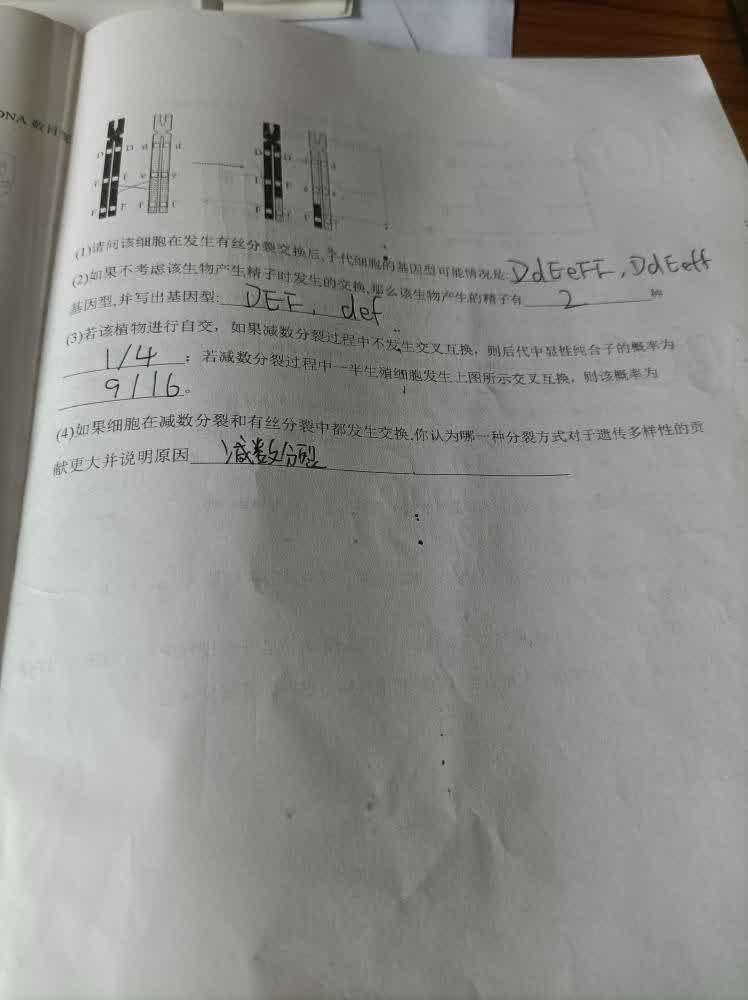 DNA 数目
D D d d
F f
(1)请问该细胞在发生有丝分裂交换后,子代细胞的基因型可能情况是: DdEeFF, DdEeff
(2)如果不考虑该生物产生精子时发生的交换,那么该生物产生的精子有 2 种
基因型,并写出基因型: DEF, def
(3)若该植物进行自交，如果减数分裂过程中不发生交叉互换，则后代中显性纯合子的概率为
1/4 ；若减数分裂过程中一半生殖细胞发生上图所示交叉互换，则该概率为
9/16 。
(4)如果细胞在减数分裂和有丝分裂中都发生交换,你认为哪一种分裂方式对于遗传多样性的贡
献更大并说明原因 减数分裂